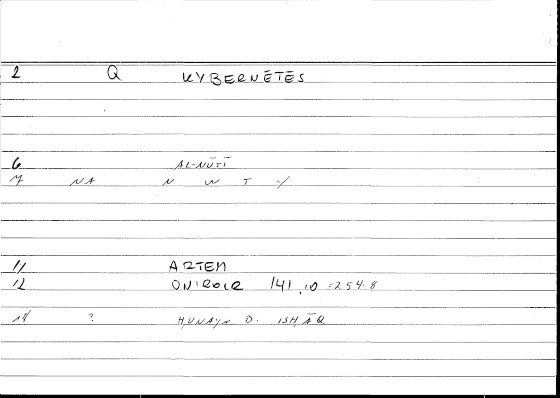 2 Q KYBERNĒTĒS
6 AL-NŪTĪ
7 NA N W T Y
11 ARTEM
12 ONIROCR 141,10 = 254.8
14 ? ḤUNAYN B. ISḤĀQ